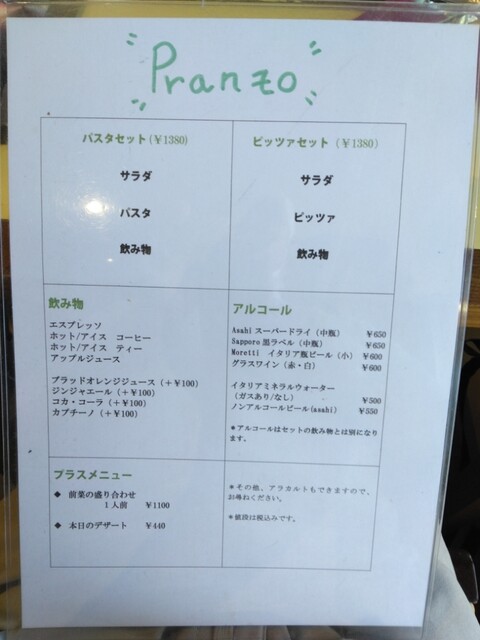 Pranzo
パスタセット(￥1380)
サラダ
パスタ
飲み物
ピッツァセット (￥1380)
サラダ
ピッツァ
飲み物
飲み物
エスプレッソ
ホット/アイス コーヒー
ホット/アイス ティー
アップルジュース
ブラッドオレンジジュース（＋￥100）
ジンジャエール（＋￥100）
コカ・コーラ（＋￥100）
カプチーノ（＋￥100）
アルコール
Asahi スーパードライ（中瓶） ￥650
Sapporo 黒ラベル（中瓶） ￥650
Moretti イタリア瓶ビール（小） ￥600
グラスワイン（赤・白） ￥600
イタリアミネラルウォーター
（ガスあり/なし） ￥500
ノンアルコールビール(asahi) ￥550
＊アルコールはセットの飲み物とは別になり
ます。
プラスメニュー
◆ 前菜の盛り合わせ
1人前 ￥1100
◆ 本日のデザート ￥440
＊その他、アラカルトもできますので、
お尋ねください。
＊値段は税込みです。